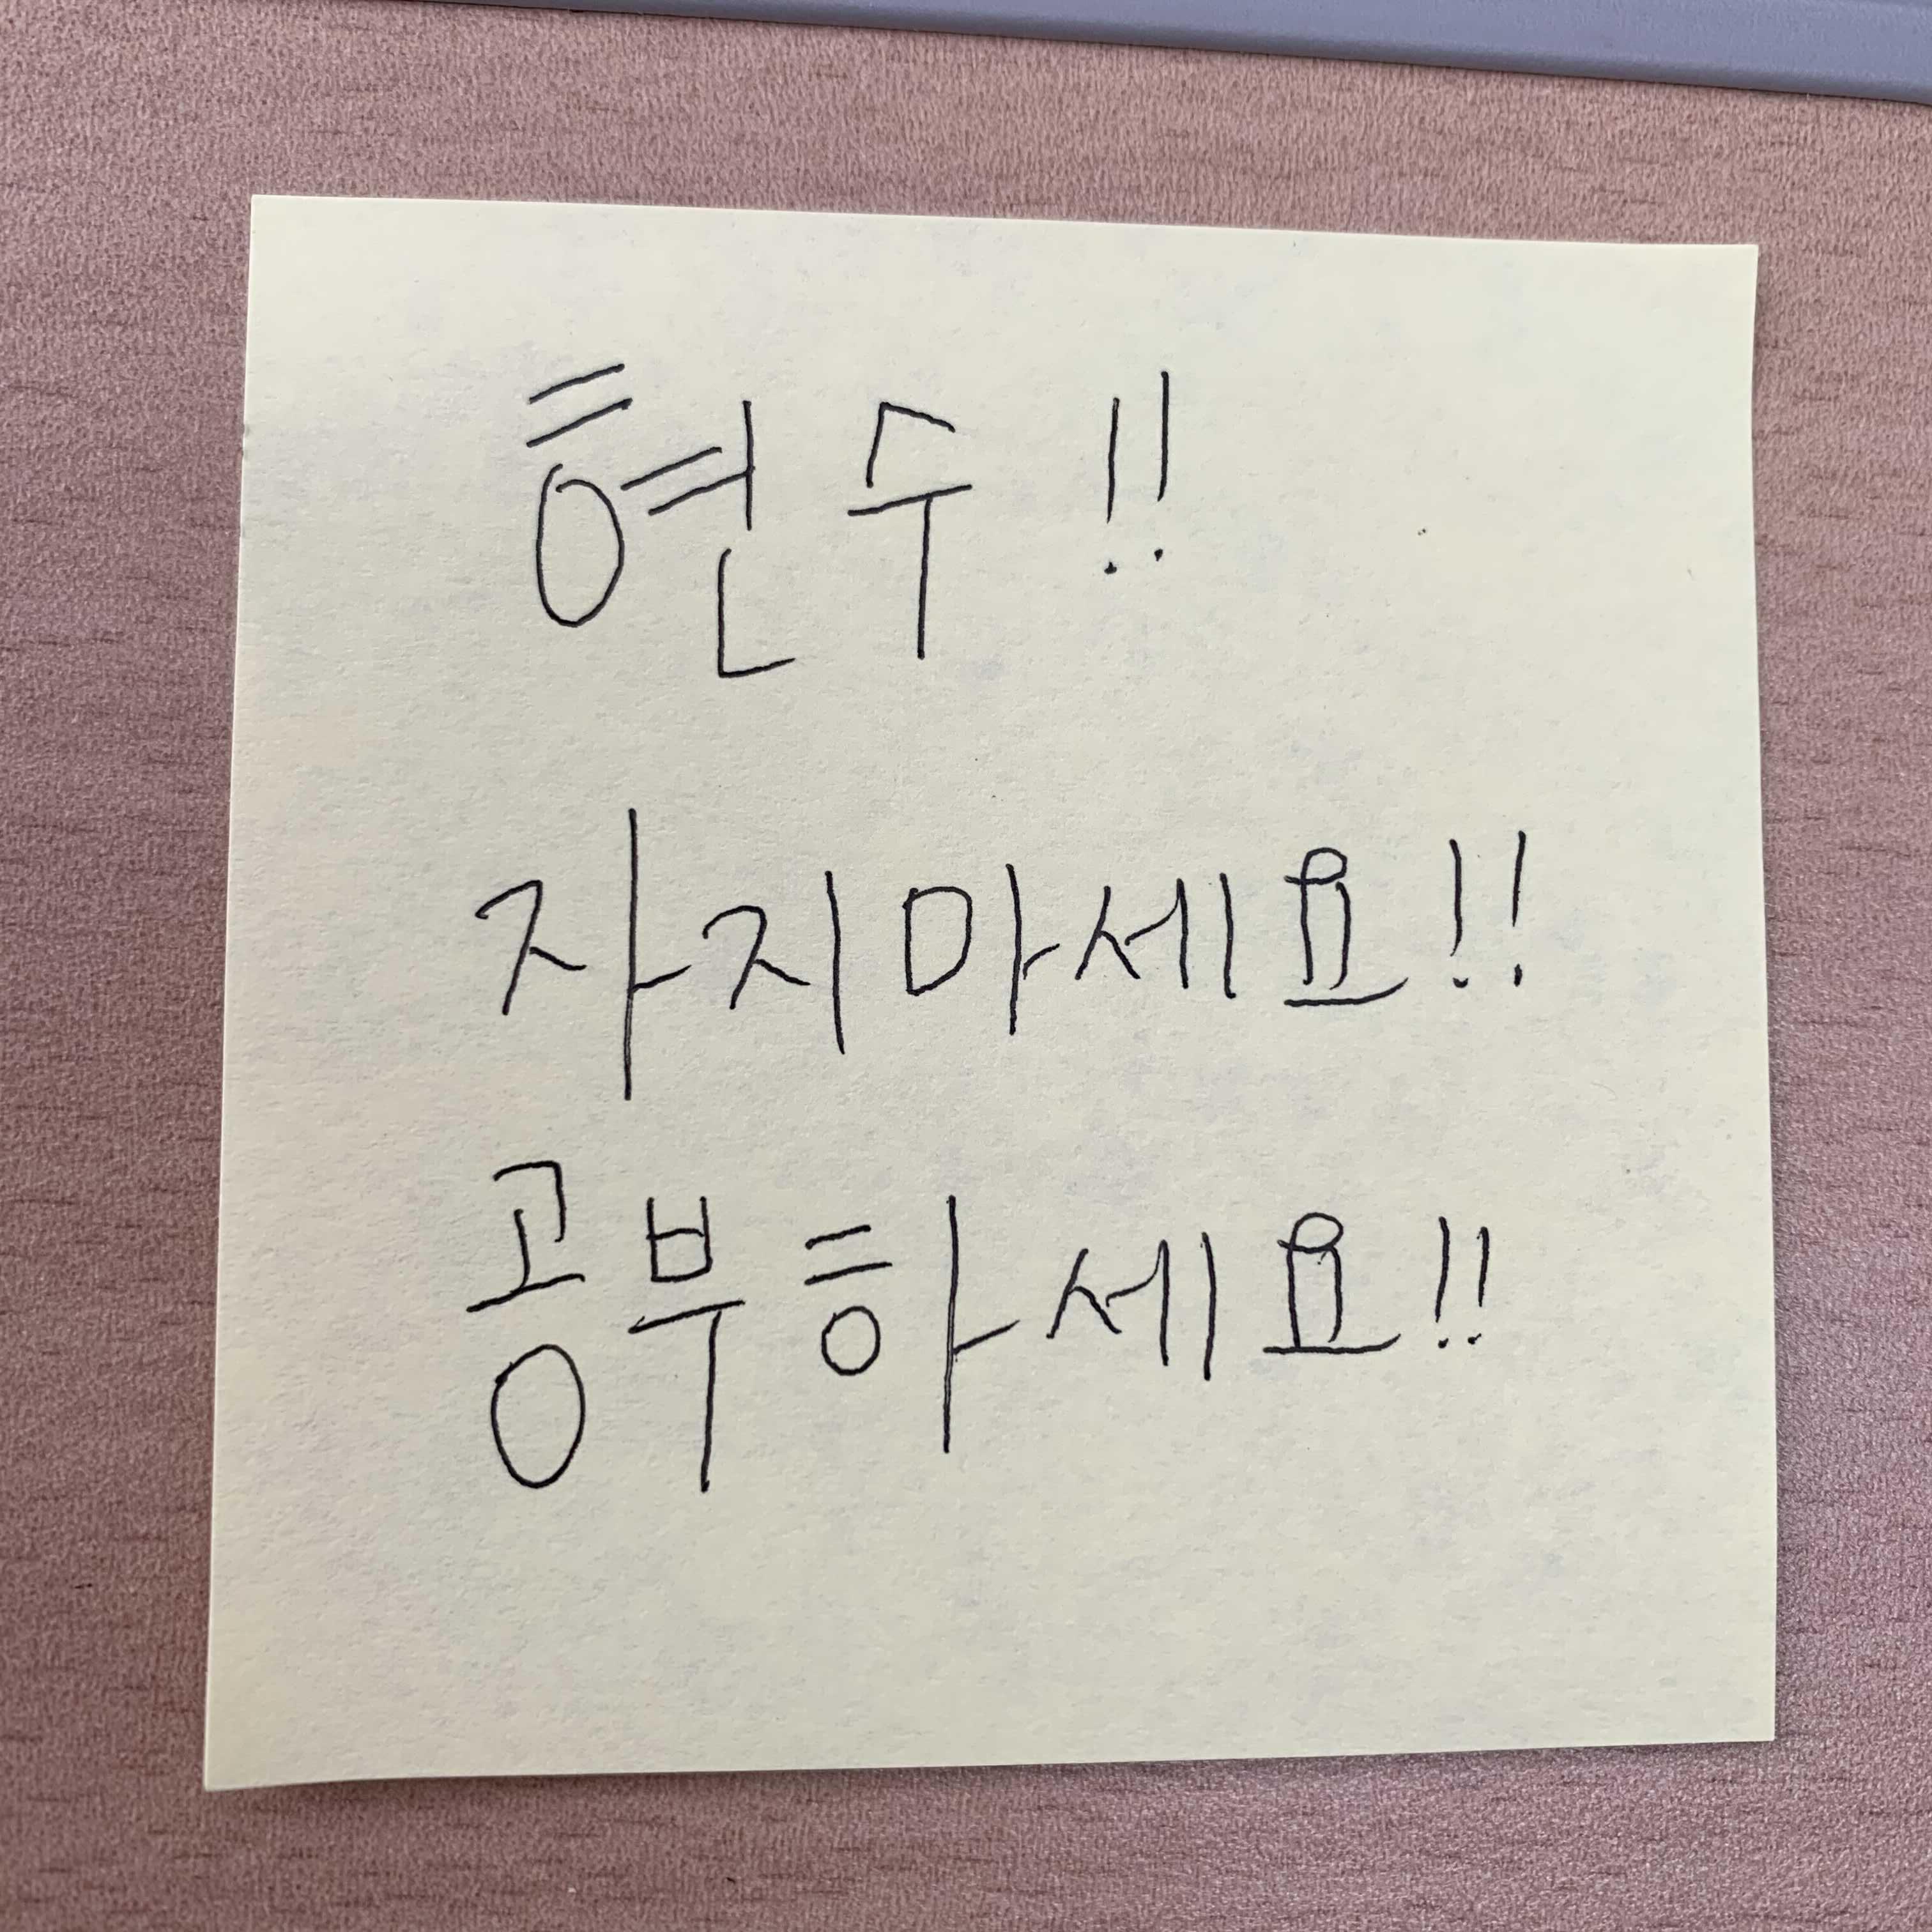 현수!!
자지마세요!!
공부하세요!!